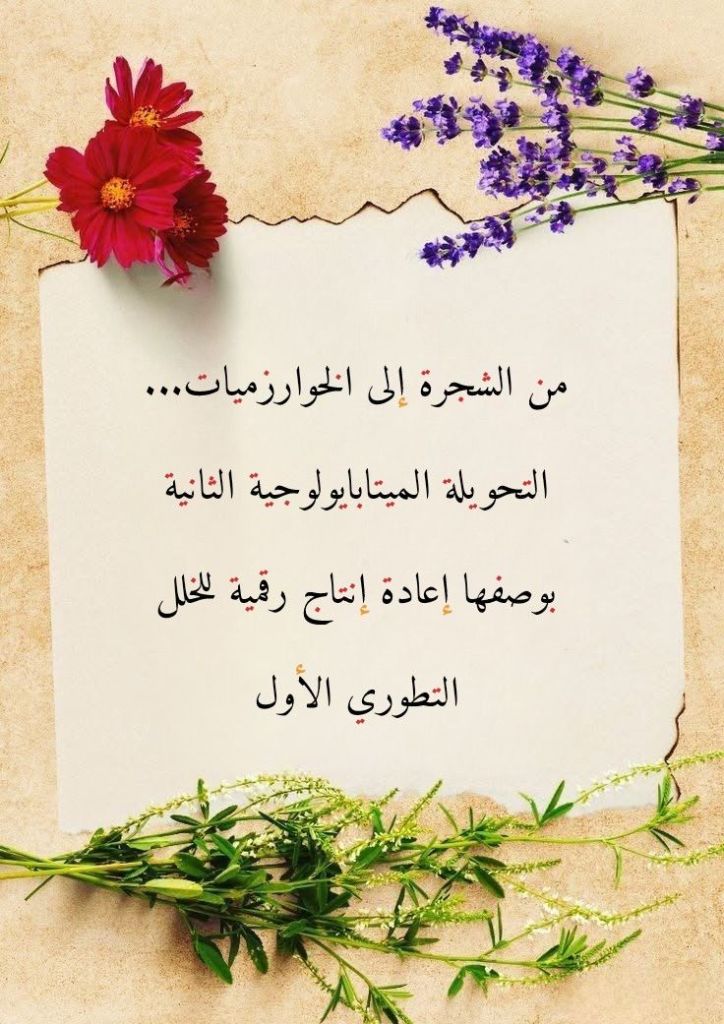 من الشجرة إلى الخوارزميات...
التحويلة الميتابايولوجية الثانية
بوصفها إعادة إنتاج رقمية للخلل
التطوري الأول